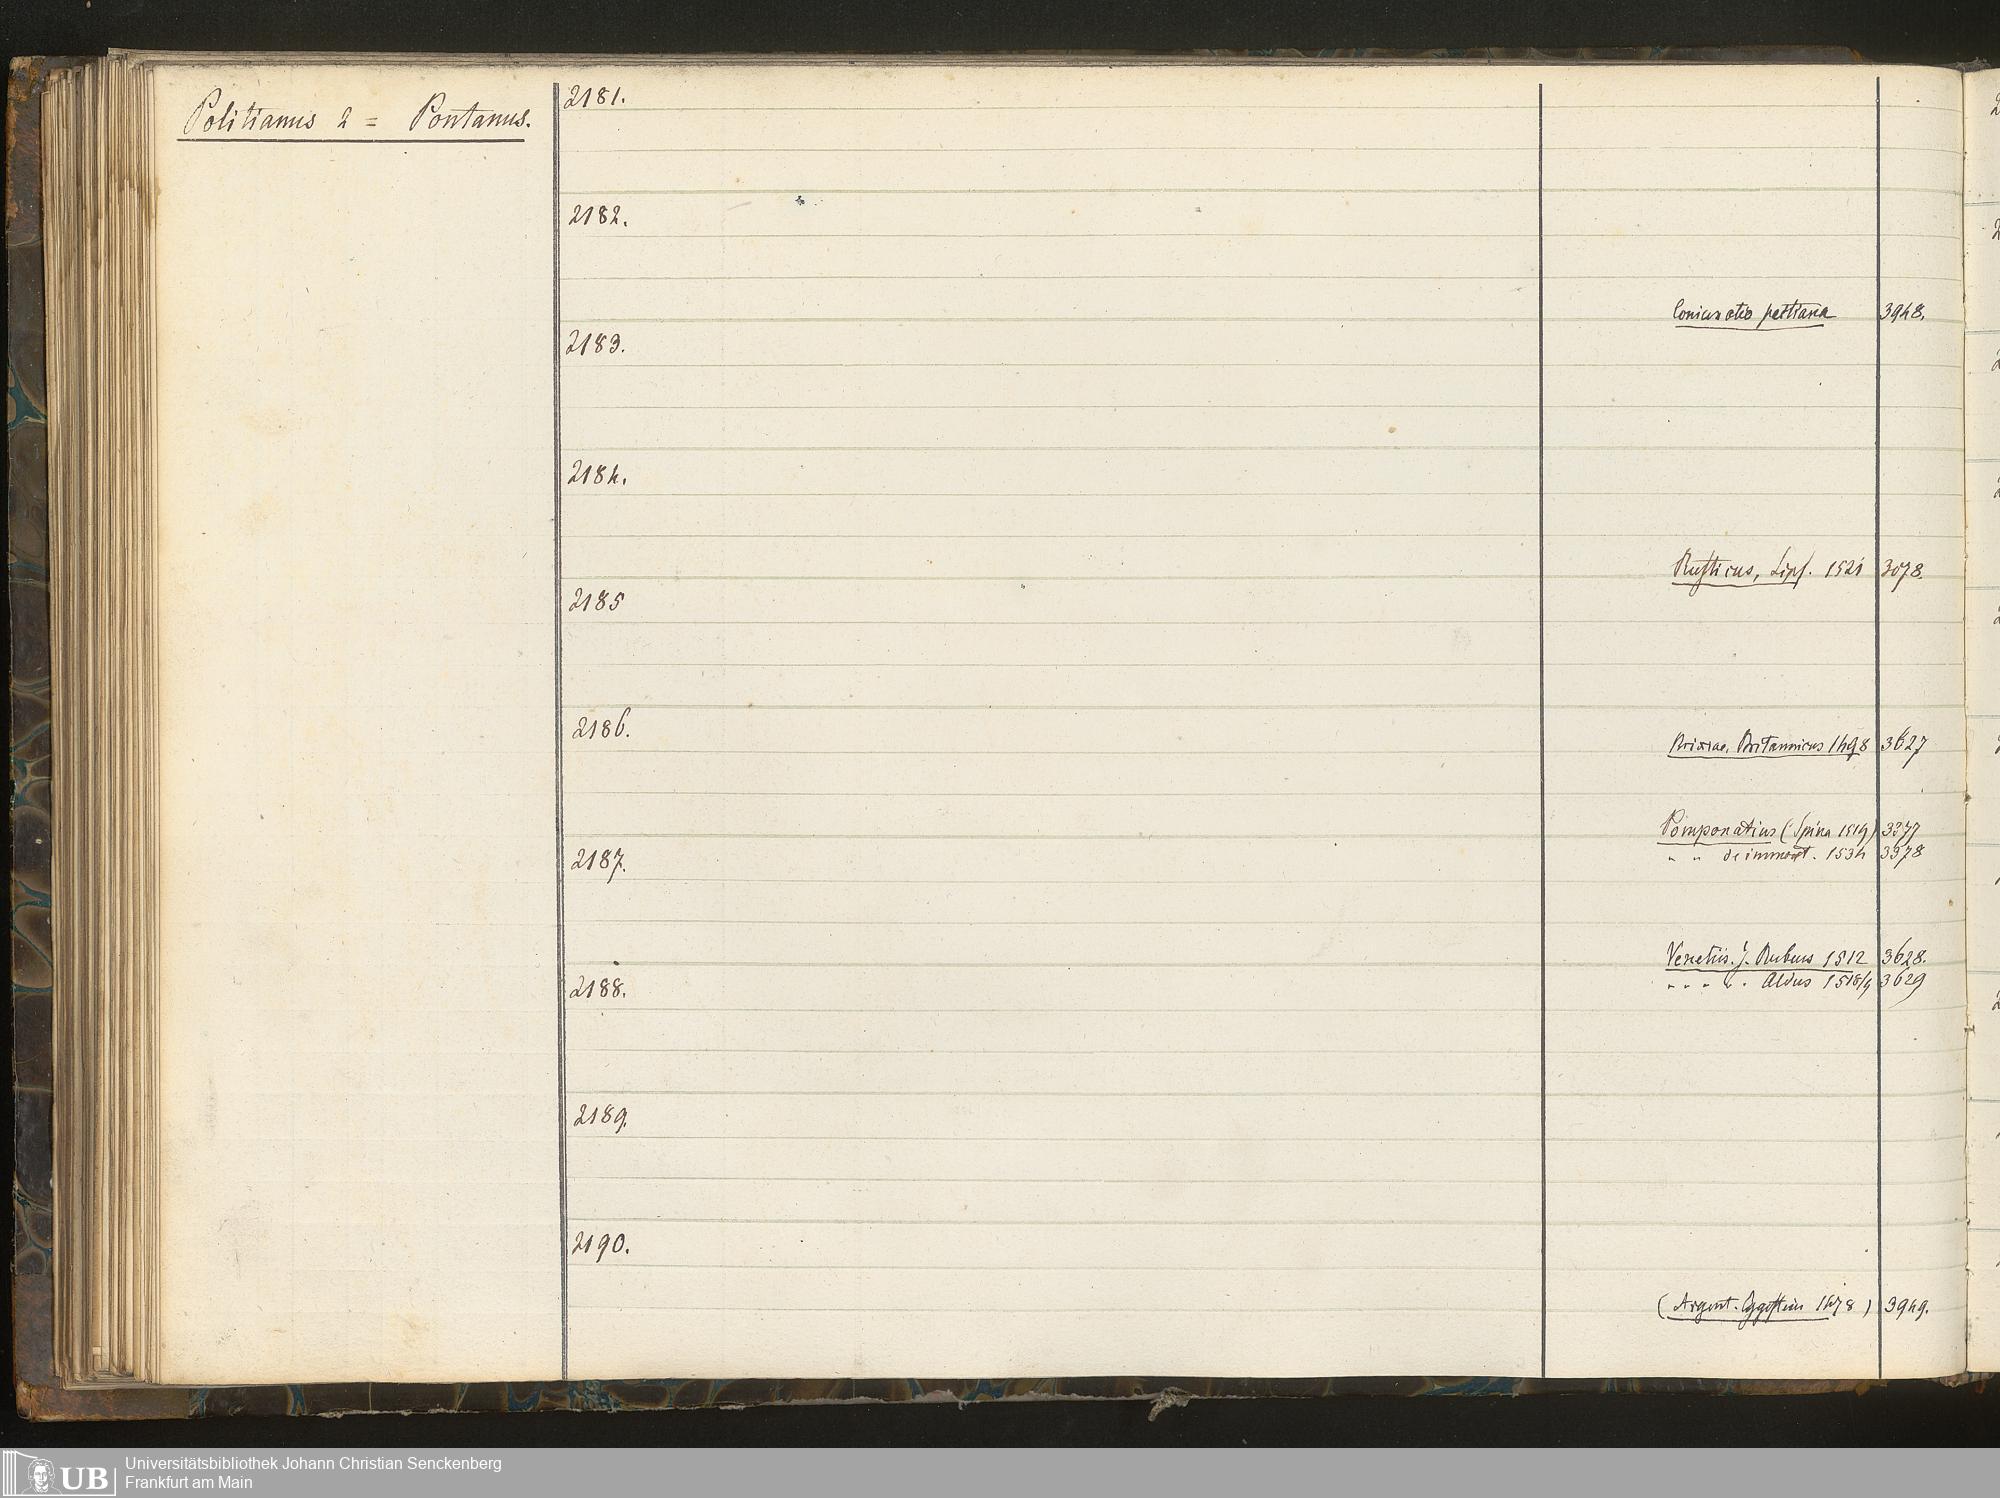 Politianus 2 = Pontanus.
2181.
2182.
Coniuratio pactiana 3948.
2183.
2184.
Rusticus, Lips. 1521 3078.
2185
2186.
Brixiae. Britannicus 1498 3627
Pomponatius (Spina 1519) 3377
" " de immort. 1534 3378
2187.
Venetiis. J. Rubeus 1512 3628.
" " " " " Aldus 1518/9 3629
2188.
2189.
2190.
(Argent. Eggestein 1478) 3949.
2
2
2
2
2
2
UB
Universitätsbibliothek Johann Christian Senckenberg
Frankfurt am Main